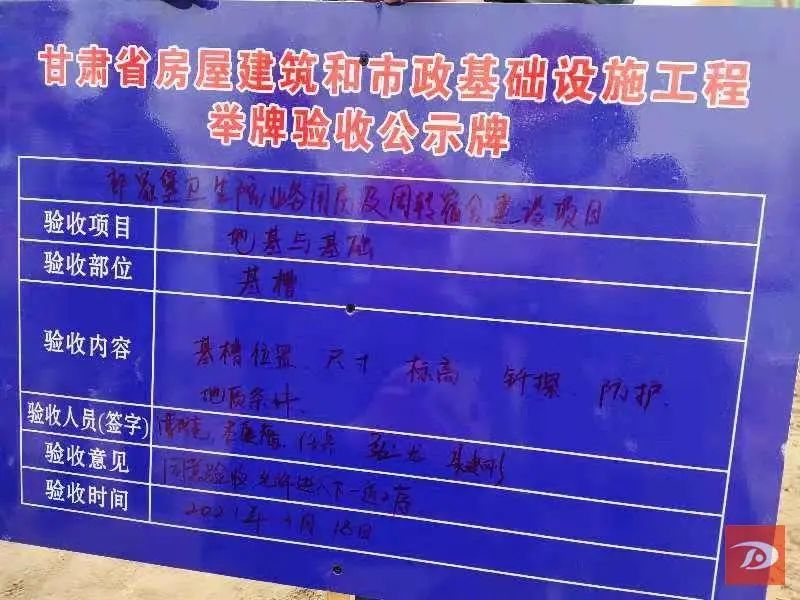 甘肃省房屋建筑和市政基础设施工程
举牌验收公示牌
郭家堡卫生院业务用房及周转宿舍建设项目
验收项目 地基与基础
验收部位 基槽
验收内容 基槽位置、尺寸、标高、钎探、防护、
地质条件.
验收人员(签字)
验收意见 同意验收允许进入下一道工序
验收时间 2021年 月18日